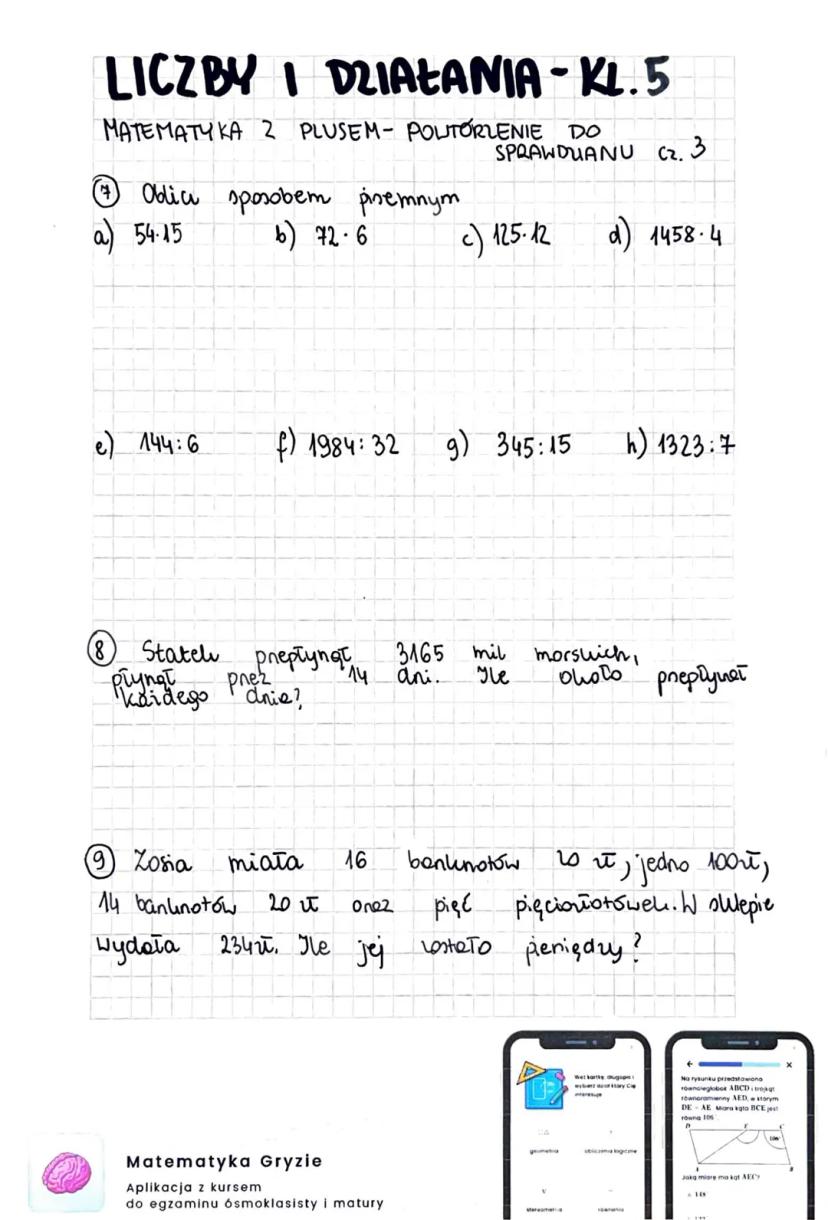 LICZBY I DZIAŁANIA - KL. 5
MATEMATYKA Z PLUSEM - POWTÓRZENIE DO
SPRAWDZIANU cz. 3
7 Oblicz sposobem pisemnym
a) 54·15 b) 72·6 c) 125·12 d) 1458·4
e) 144:6 f) 1984:32 g) 345:15 h) 1323:7
8 Statek przepłynął 3165 mil morskich,
płynął przez 14 dni. Ile około przepłynął
każdego dnia?
9 Zosia miała 16 banknotów 20 zł, jedno 100zł,
14 banknotów 20 zł oraz pięć pięciozłotówek. W sklepie
wydała 234zł. Ile jej zostało pieniędzy?
Matematyka Gryzie
Aplikacja z kursem
do egzaminu ósmoklasisty i matury
Weź kartkę, długopis i
wybierz dział który Cię
interesuje
geometria obliczenia logiczne
stereometria równania
Na rysunku przedstawiono
równoległobok ABCD i trójkąt
równoramienny AED, w którym
DE = AE. Miara kąta BCE jest
równa 106°.
D E C
106°
A B
Jaką miarę ma kąt AEC?
A 148